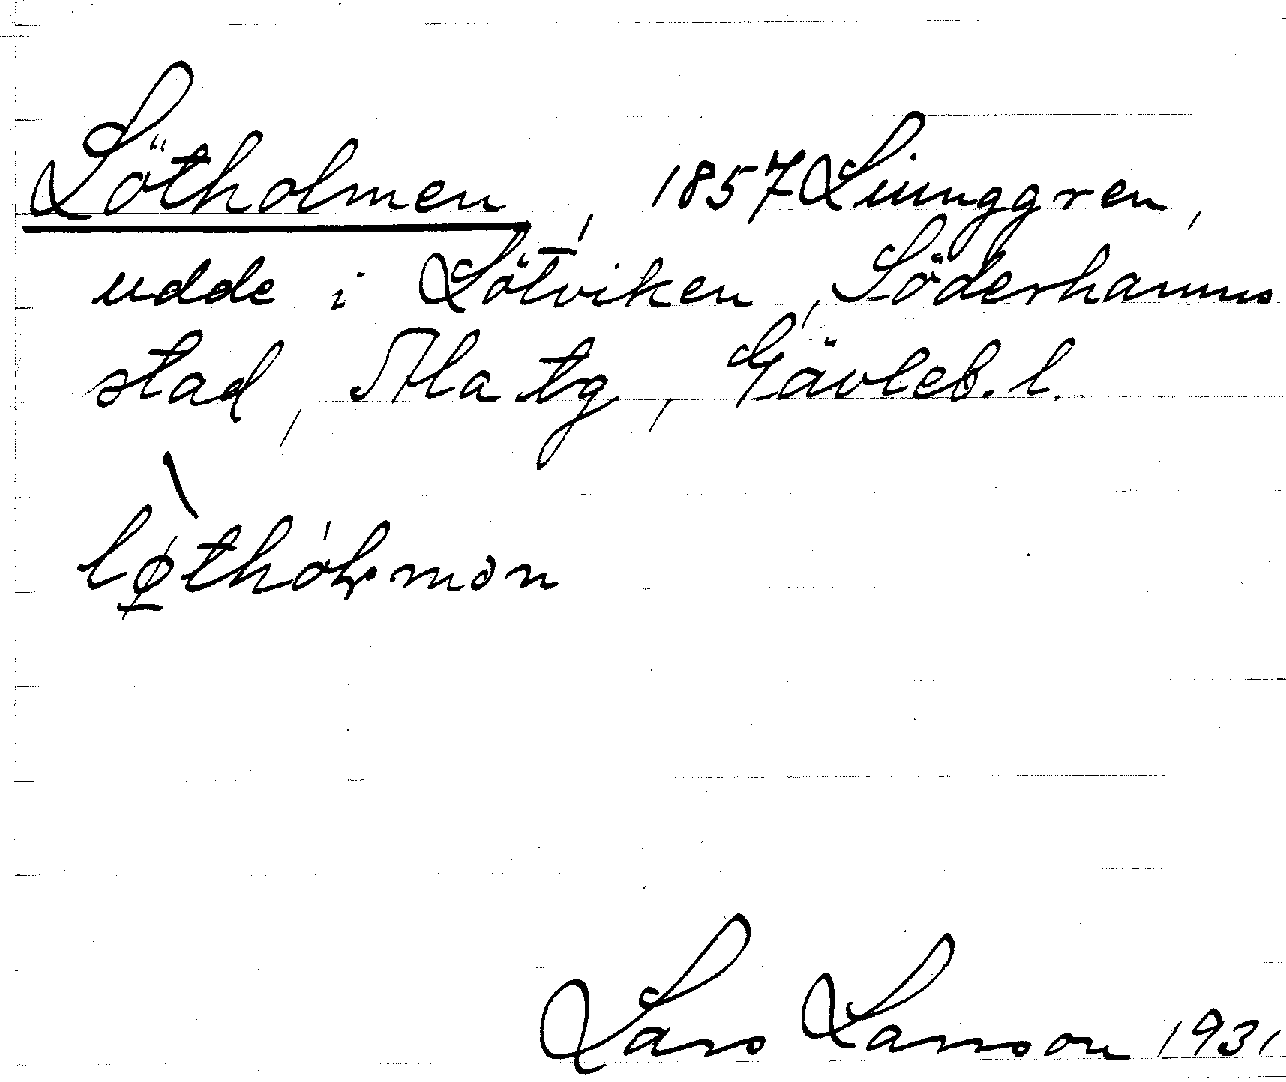 Lötholmen, 1857 Ljunggren,
udde i Lötviken, Söderhamns
stad, Ala tg, Gävleb. l.
Lars Larsson 1931